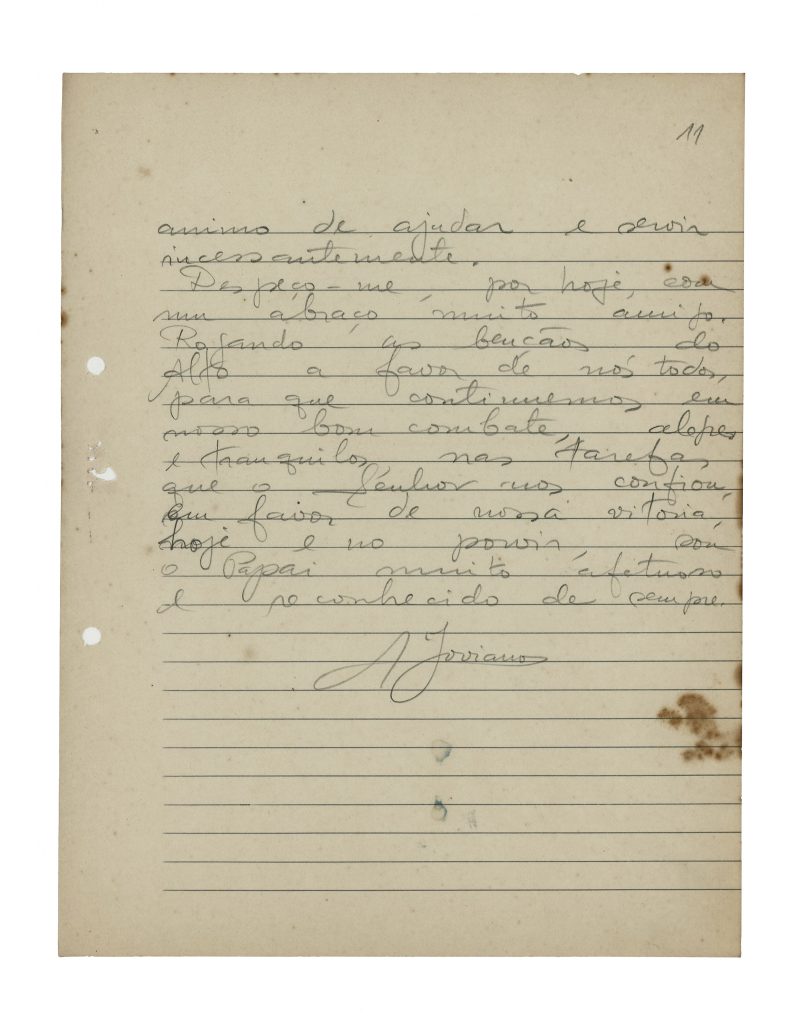 11
animo de ajudar e servir
incessantemente.
Despeço-me, por hoje, com
um abraço muito amigo.
Rogando as bençãos do
Alto a favor de nós todos,
para que continuemos em
nosso bom combate, alegres
e tranquilos nas tarefas
que o Senhor nos confiou,
em favor de nossa vitoria,
hoje e no porvir, sou
o Papai muito afetuoso
e reconhecido de sempre.
A Joviano